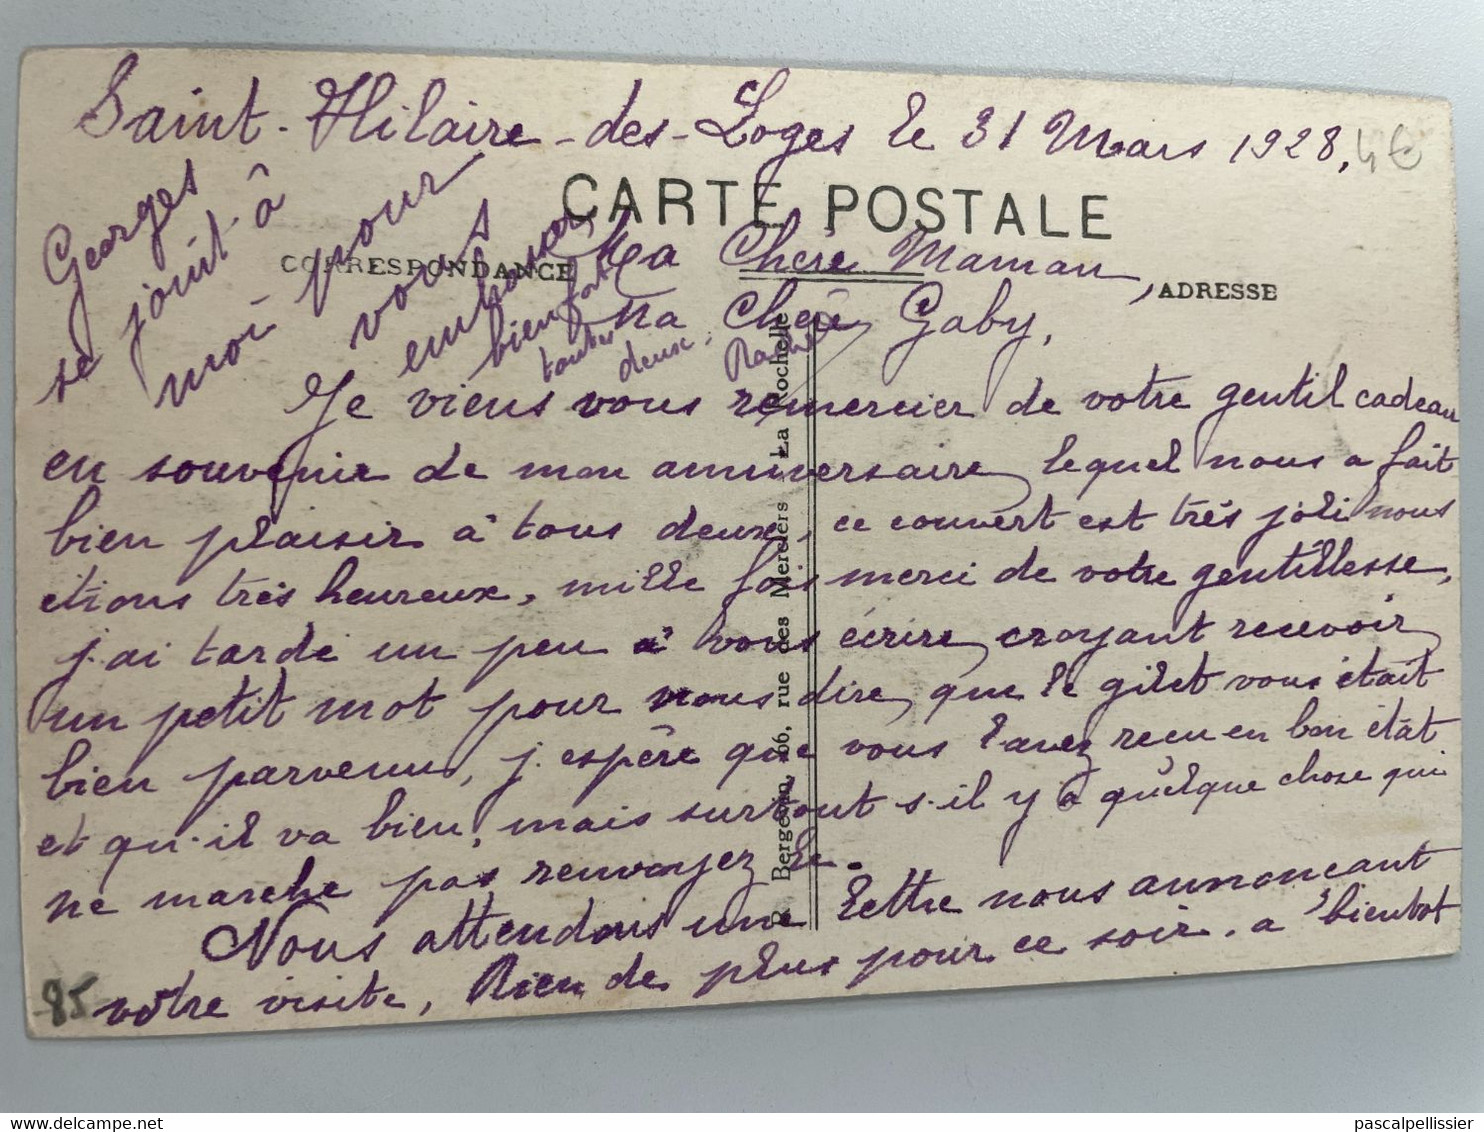 Saint-Hilaire-des-Loges le 31 Mars 1928,
4€
CARTE POSTALE
CORRESPONDANCE
ADRESSE
Ma Chère Maman,
Ma Chère Gaby,
Je viens vous remercier de votre gentil cadeau
en souvenir de mon anniversaire, lequel nous a fait
bien plaisir à tous deux, ce couvert est très joli nous
étions très heureux, mille fois merci de votre gentillesse,
j'ai tardé un peu à vous écrire, croyant recevoir
un petit mot pour nous dire, que le gilet vous était
bien parvenu, j'espère que vous l'avez reçu en bon état
et qu'il va bien, mais surtout s'il y a quelque chose qui
ne marche pas renvoyez le.
Nous attendons une lettre nous annonçant
votre visite, Rien de plus pour ce soir. a bientot
Georges
se joint à
moi pour
vous
embrasser
bien fort
toutes
deux.
85
R. Bergevin, 66, rue des Merciers - La Rochelle
delcampe.net
pascalpellissier